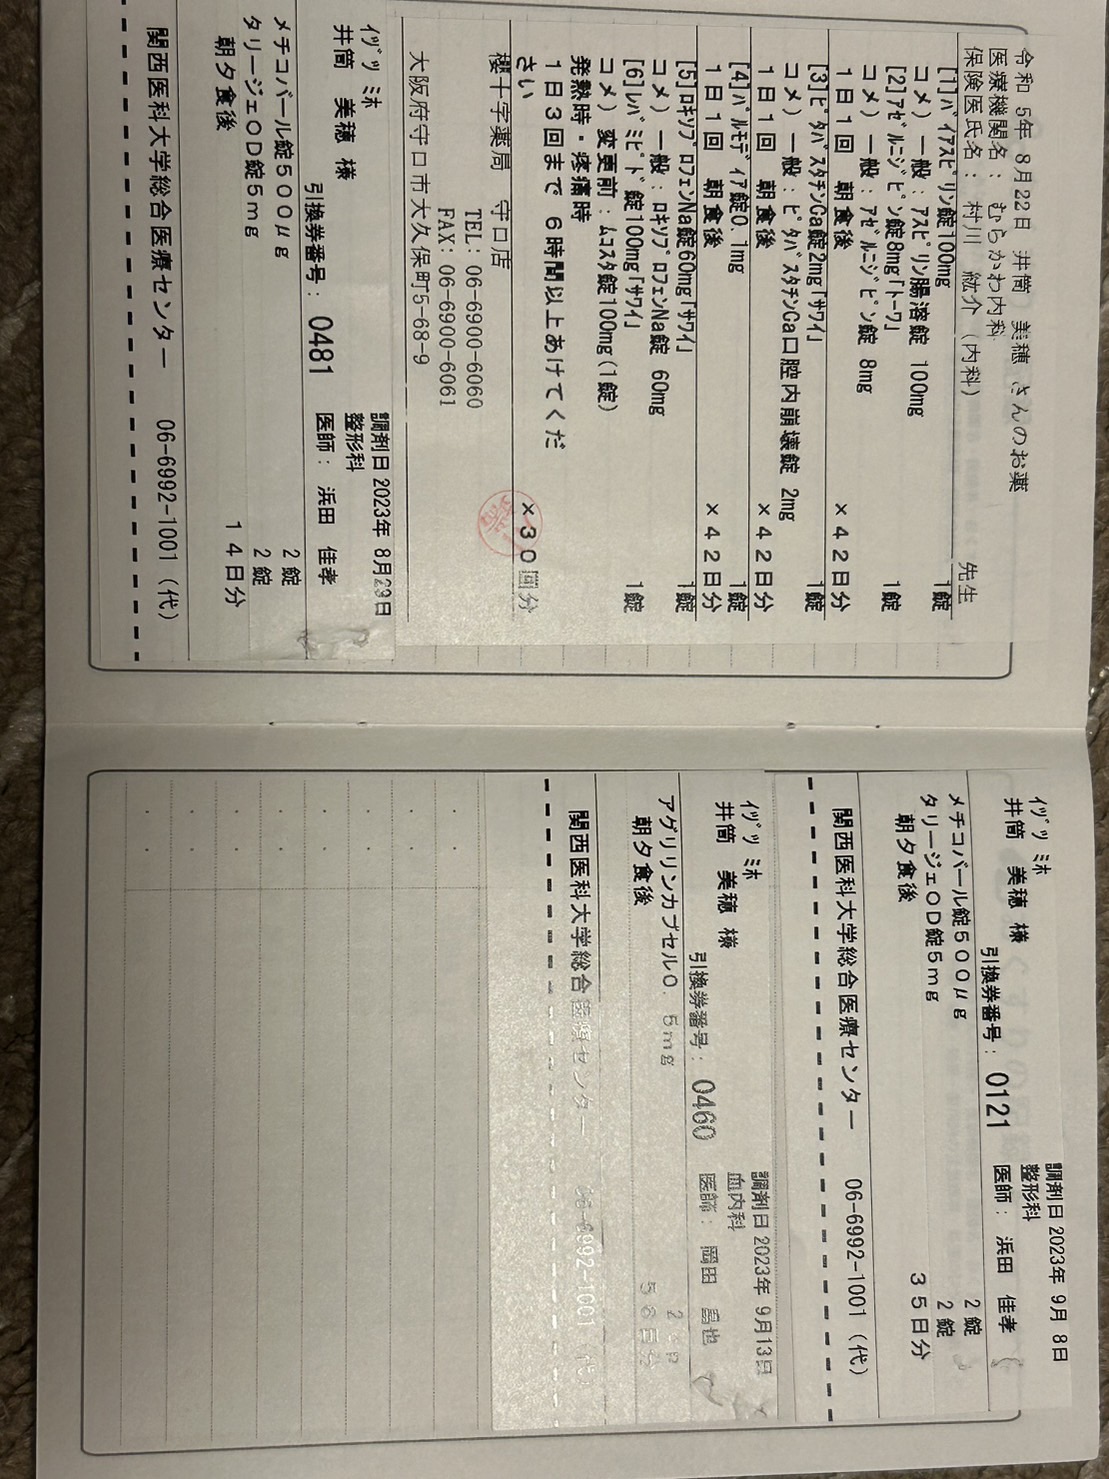 令和 5年 8月22日 井筒 美穂 さんのお薬
医療機関名： むらかわ内科
保険医氏名： 村川 紘介 (内科) 先生
[1]ﾊﾞｲｱｽﾋﾟﾘﾝ錠100mg 1錠
コメ) 一般：ｱｽﾋﾟﾘﾝ腸溶錠 100mg
[2]ｱｾﾞﾙﾆｼﾞﾋﾟﾝ錠8mg｢ﾄｰﾜ｣ 1錠
コメ) 一般：ｱｾﾞﾙﾆｼﾞﾋﾟﾝ錠 8mg
1日1回 朝食後 ×42日分
[3]ﾋﾟﾀﾊﾞｽﾀﾁﾝCa錠2mg｢ｻﾜｲ｣ 1錠
コメ) 一般：ﾋﾟﾀﾊﾞｽﾀﾁﾝCa口腔内崩壊錠 2mg
1日1回 朝食後 ×42日分
[4]ﾊﾟﾙﾓﾃﾞｨｱ錠0.1mg 1錠
1日1回 朝食後 ×42日分
[5]ﾛｷｿﾌﾟﾛﾌｪﾝNa錠60mg｢ｻﾜｲ｣ 1錠
コメ) 一般：ﾛｷｿﾌﾟﾛﾌｪﾝNa錠 60mg
[6]ﾚﾊﾞﾐﾋﾟﾄﾞ錠100mg｢ｻﾜｲ｣ 1錠
コメ) 変更前：ﾑｺｽﾀ錠100mg(1錠)
発熱時・疼痛時
1日3回まで 6時間以上あけてくだ
さい ×30回分
櫻十字薬局 守口店
TEL: 06-6900-6060
FAX: 06-6900-6061
大阪府守口市大久保町5-68-9
調剤日 2023年 8月29日
ｲﾂﾞﾂ ﾐﾎ 整形科
井筒 美穂 様
引換券番号： 0481 医師： 浜田 佳孝
メチコバール錠500μg 2錠
タリージェOD錠5mg 2錠
朝夕食後 14日分
関西医科大学総合医療センター 06-6992-1001 (代)
調剤日 2023年 9月 8日
ｲﾂﾞﾂ ﾐﾎ 整形科
井筒 美穂 様
引換券番号： 0121 医師： 浜田 佳孝
メチコバール錠500μg 2錠
タリージェOD錠5mg 2錠
朝夕食後 35日分
関西医科大学総合医療センター 06-6992-1001 (代)
調剤日 2023年 9月13日
ｲﾂﾞﾂ ﾐﾎ 血内科
井筒 美穂 様
引換券番号： 0460 医師： 岡田
アグリリンカプセル0.5mg
朝夕食後 56日分
関西医科大学総合医療センター 06-6992-1001 (代)